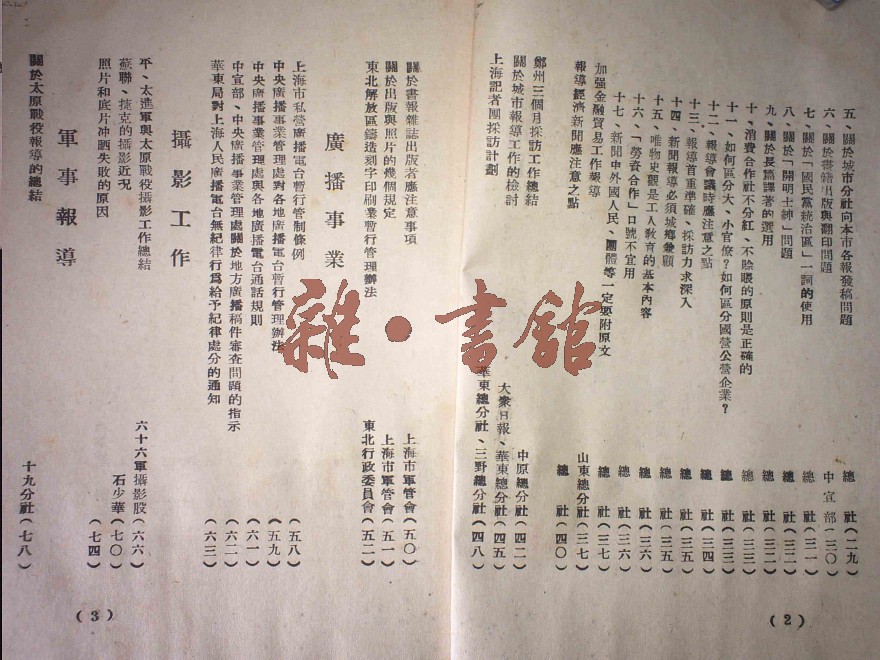 五、關於城市分社向本市各報發稿問題 總 社(二九)
六、關於書籍出版與翻印問題 中宣部(三〇)
七、關於「國民黨統治區」一詞的使用 總 社(三一)
八、關於「開明士紳」問題 總 社(三二)
九、關於長篇譯著的選用 總 社(三二)
十、消費合作社不分紅、不賒賬的原則是正確的 總 社(三三)
十一、如何區分大、小官僚？如何區分國營公營企業？ 總 社(三三)
十二、報導會議時應注意之點 總 社(三四)
十三、報導首重準確、採訪力求深入 總 社(三五)
十四、新聞報導必須城鄉兼顧 總 社(三五)
十五、唯物史觀是工人教育的基本內容 總 社(三六)
十六、「勞資合作」口號不宜用 總 社(三六)
十七、新聞中外國人民、團體等一定要附原文 總 社(三七)
加强金融貿易工作報導 山東總分社(三七)
報導經濟新聞應注意之點 總 社(四〇)
鄭州三個月採訪工作總結 中原總分社(四二)
關於城市報導工作的檢討 大衆日報、華東總分社(四五)
上海記者團採訪計劃 華東總分社、三野總分社(四八)
(2)
關於書報雜誌出版者應注意事項 上海市軍管會(五〇)
關於出版與照片的幾個規定 上海市軍管會(五一)
東北解放區鑄造刻字印刷業暫行管理辦法 東北行政委員會(五二)
廣播事業
上海市私營廣播電台暫行管制條例 (五八)
中央廣播事業管理處對各地廣播電台暫行管理辦法 (五九)
中央廣播事業管理處與各地廣播電台通話規則 (六一)
中宣部、中央廣播事業管理處關於地方廣播稿件審查問題的指示 (六二)
華東局對上海人民廣播電台無紀律行爲給予紀律處分的通知 (六三)
攝影工作
平、太進軍與太原戰役攝影工作總結 六十六軍攝影股(六六)
蘇聯、捷克的攝影近況 石少華(七〇)
照片和底片冲晒失敗的原因 (七四)
軍事報導
關於太原戰役報導的總結 十九分社(七八)
(3)
雜·書館